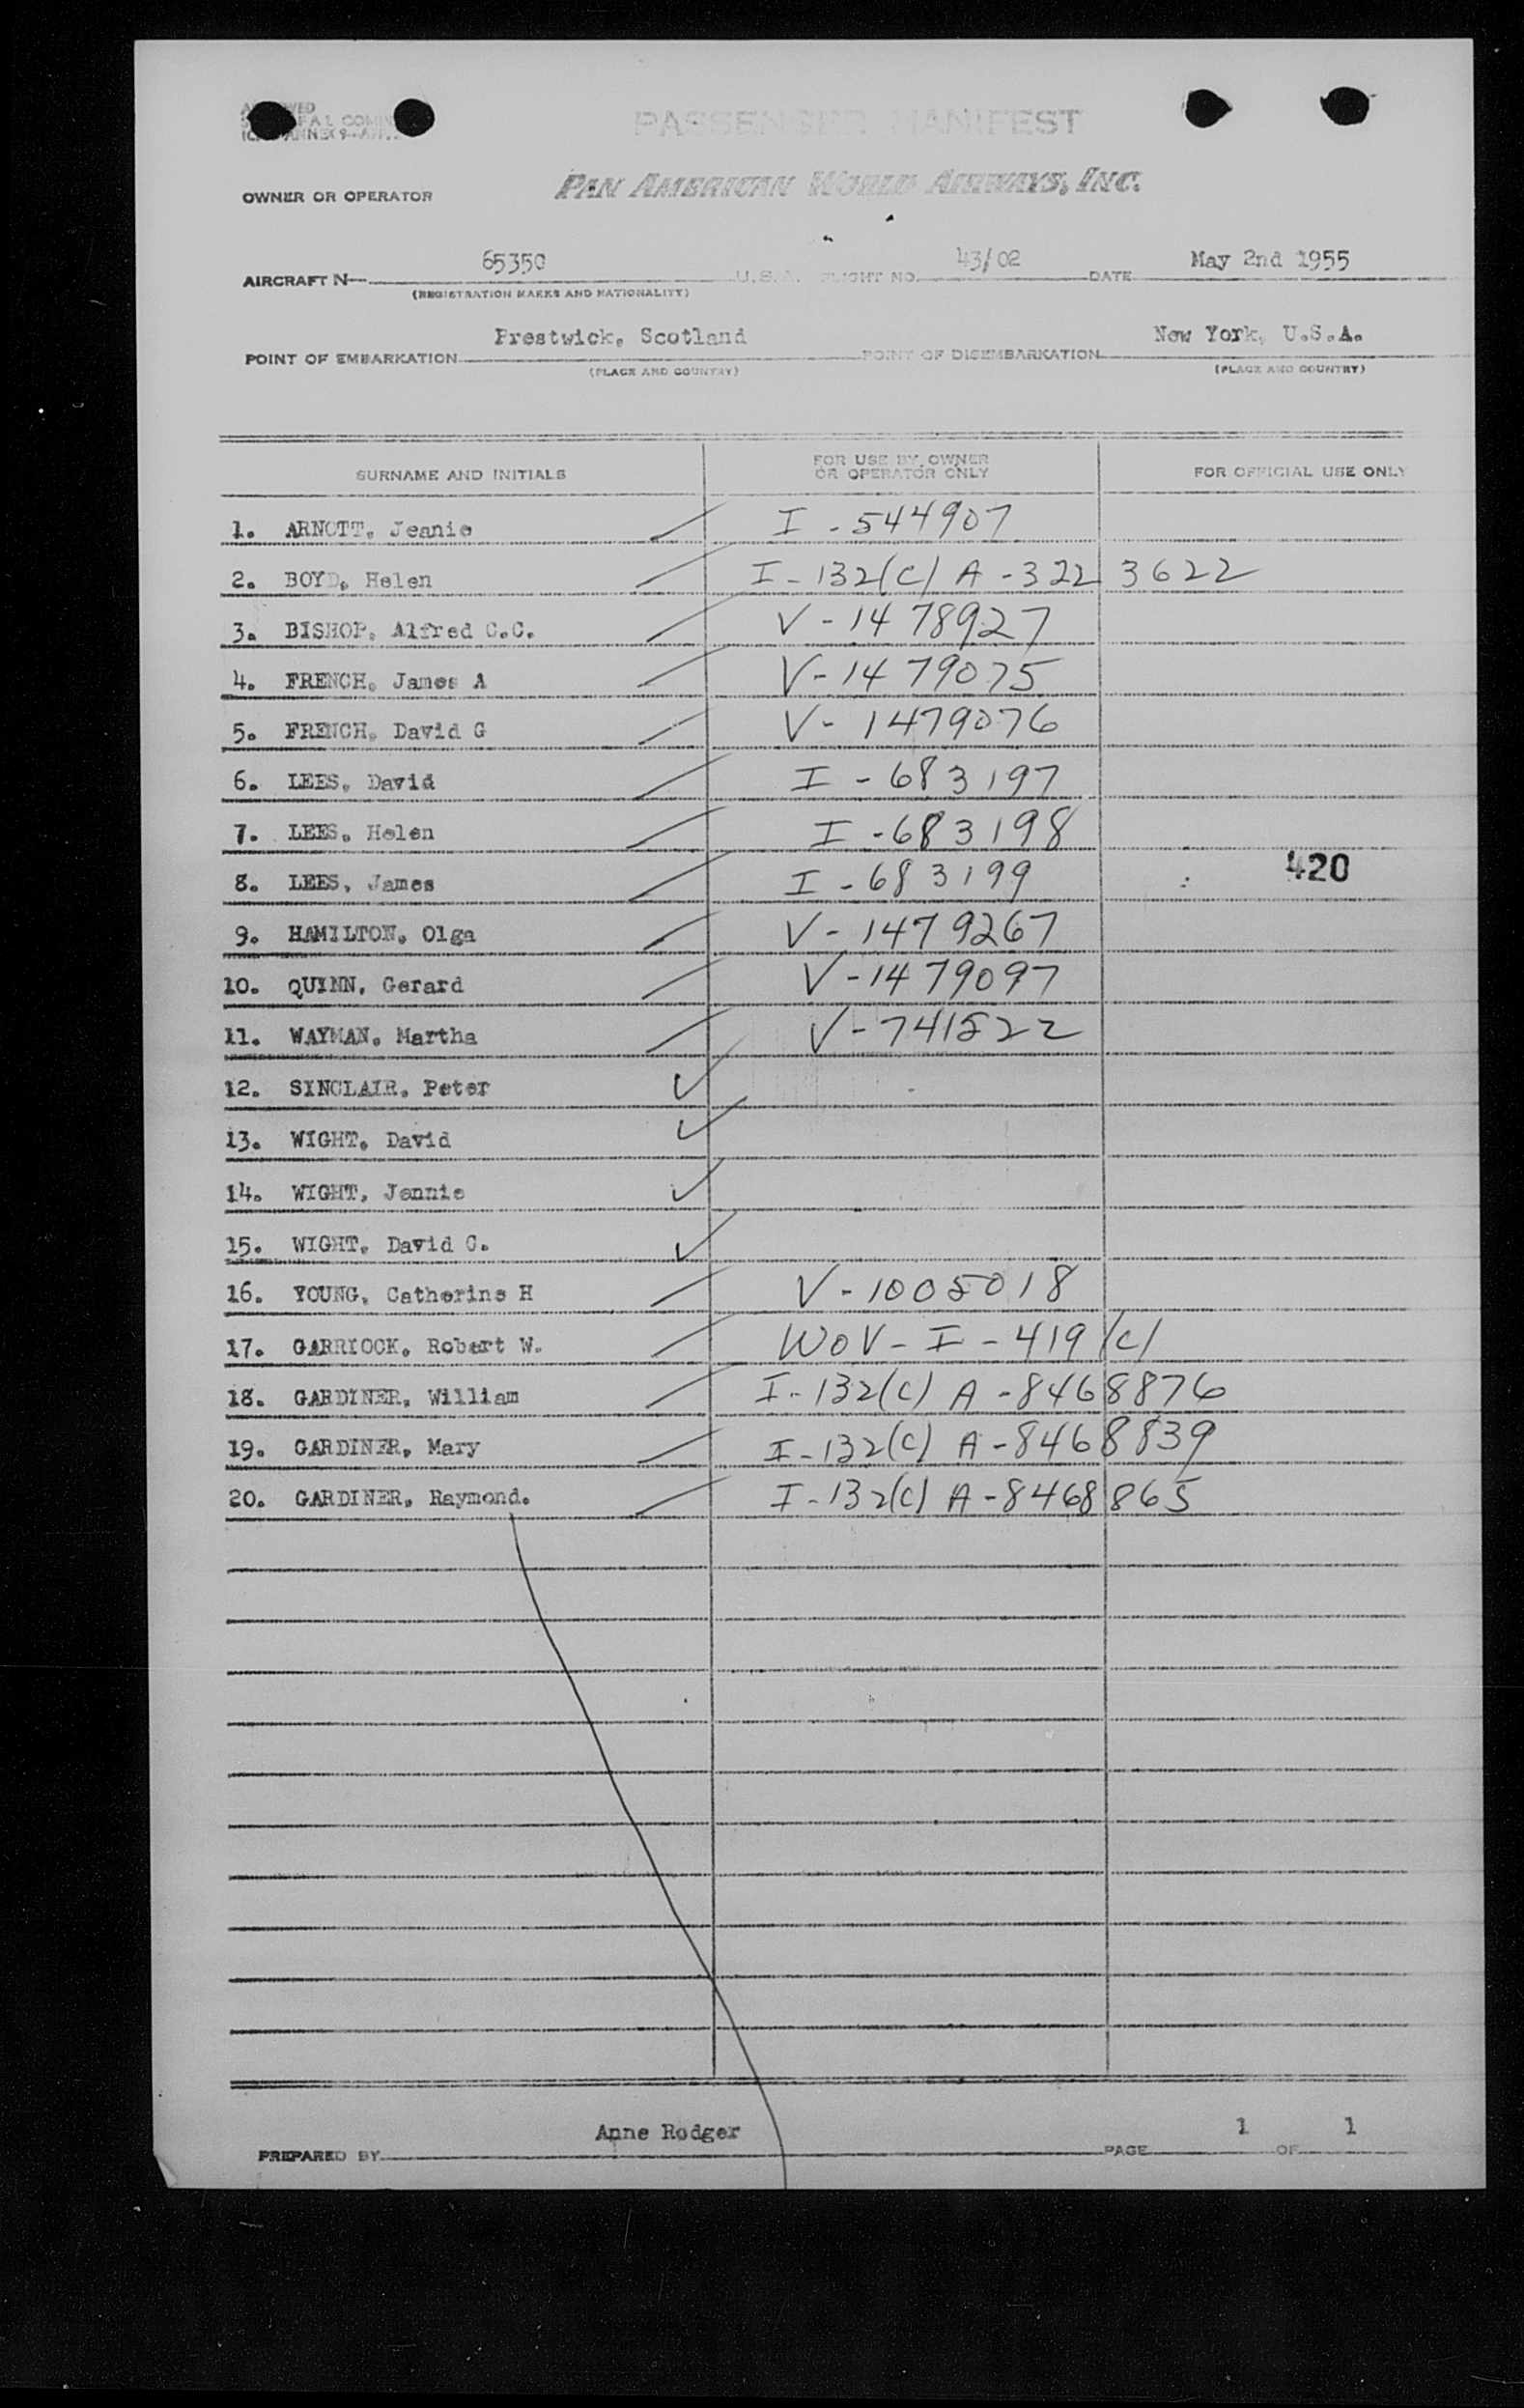 PASSENGER MANIFEST
OWNER OR OPERATOR PAN AMERICAN WORLD AIRWAYS, INC.
AIRCRAFT N 65350 U.S.A. FLIGHT NO. 43/02 DATE May 2nd 1955
(REGISTRATION MARKS AND NATIONALITY)
POINT OF EMBARKATION Prestwick, Scotland POINT OF DISEMBARKATION New York, U.S.A.
(PLACE AND COUNTRY) (PLACE AND COUNTRY)
SURNAME AND INITIALS FOR USE BY OWNER OR OPERATOR ONLY FOR OFFICIAL USE ONLY
1. ARNOTT, Jeanie I - 544907
2. BOYD, Helen I - 132(C) A - 322 3622
3. BISHOP, Alfred C.C. V - 1478927
4. FRENCH, James A V - 1479075
5. FRENCH, David G V - 1479076
6. LEES, David I - 683197
7. LEES, Helen I - 683198
8. LEES, James I - 683199 420
9. HAMILTON, Olga V - 1479267
10. QUINN, Gerard V - 1479097
11. WAYMAN, Martha V - 741522
12. SINCLAIR, Peter
13. WIGHT, David
14. WIGHT, Jennie
15. WIGHT, David C.
16. YOUNG, Catherine H V - 1005018
17. GARRIOCK, Robert W. WOV - I - 419 (C)
18. GARDINER, William I - 132(C) A - 8468876
19. GARDINER, Mary I - 132(C) A - 8468839
20. GARDINER, Raymond. I - 132(C) A - 8468865
PREPARED BY Anne Rodger PAGE 1 OF 1